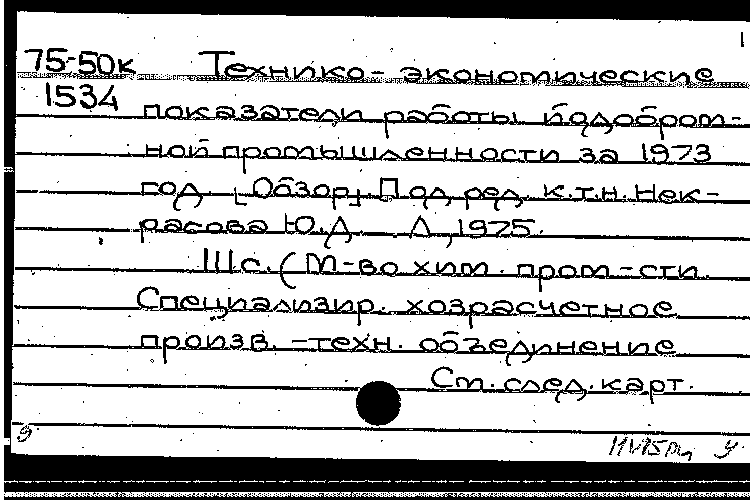 1
75-50к Технико-экономические
1534 показатели работы йодобром-
ной промышленности за 1973
год. [Обзор]. Под ред. к.т.н. Нек-
расова Ю.Д. Л, 1975.
111с. (М-во хим. пром-сти.
Специализир. хозрасчетное
произв.-техн. объединение
См. след. карт.
9